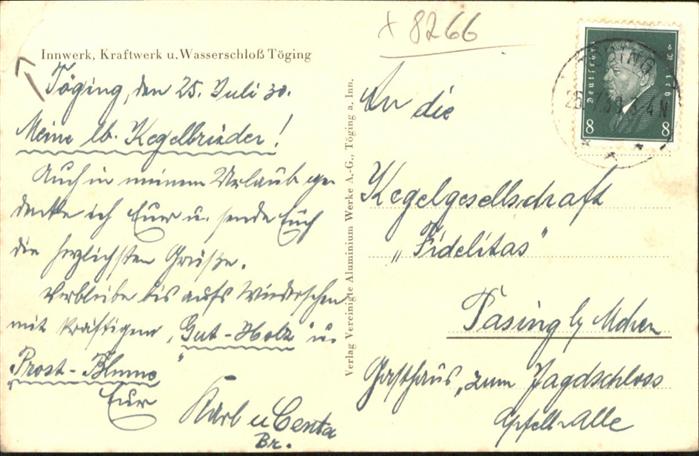 + 8266
Innwerk, Kraftwerk u. Wasserschloß Töging
Töging, den 25. Juli 30.
Meine lb. Kegelbrüder!
Auch in meinem Urlaub ge-
denke ich Eurer u. sende Euch
die herzlichsten Grüße.
Verbleibe bis aufs Wiedersehen
mit kräftigem „Gut-Holz" u.
„Prost-Blume"
Euer
Karl u Centa
Br.
Verlag Vereinigte Aluminium Werke A.-G., Töging a. Inn.
Deutsches Reich
8 8
TÖGING
An die
Kegelgesellschaft
„Fidelitas"
Pasing b/ Mchen
Gasthaus „zum Jagdschloss
Apfelallee